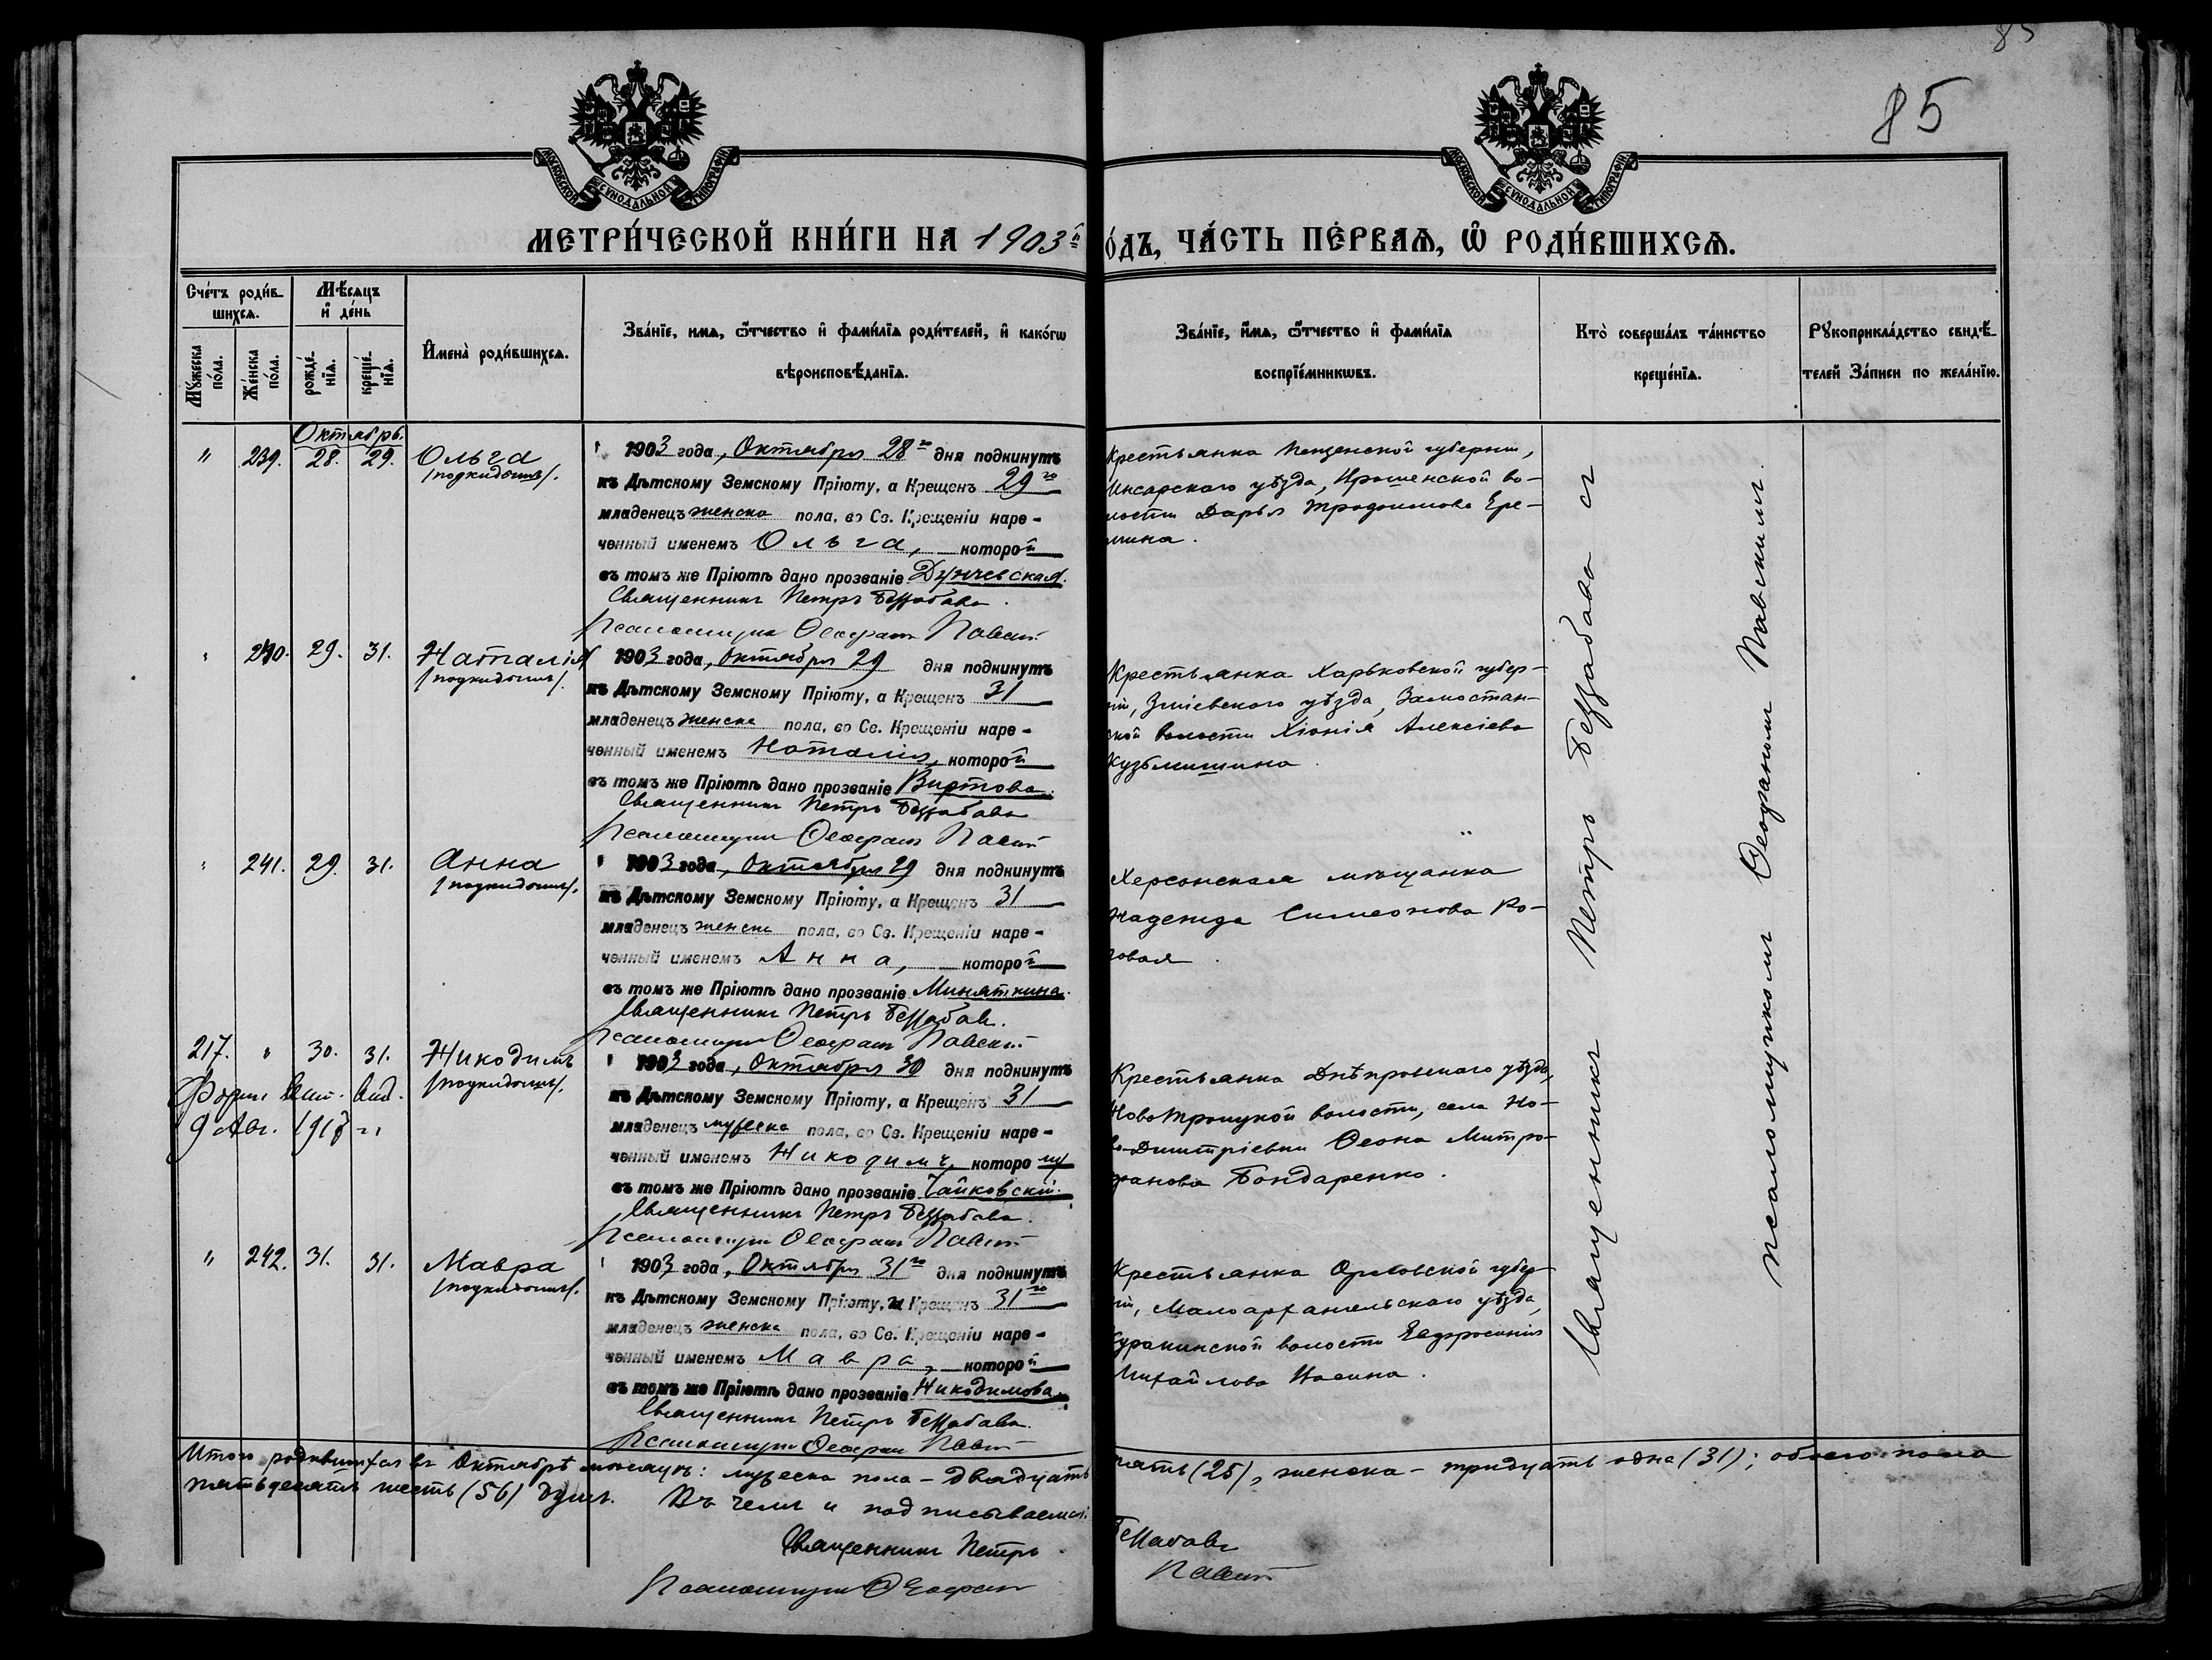 85
85
МОСКОВСКОЙ СѴНОДАЛЬНОЙ ТИПОГРАФІИ
МОСКОВСКОЙ СѴНОДАЛЬНОЙ ТИПОГРАФІИ
МЕТРИ́ЧЕСКОЙ КНИ́ГИ НА 1903й
О́ДЪ, ЧА́СТЬ ПЕ́РВАѦ, Ѡ҆ РОДИ́ВШИХСѦ.
Сче́тъ роди́в-
шихсѧ.
Мѣ́сѧцъ
и҆ де́нь
Мꙋ́жеска
по́ла.
Же́нска
по́ла.
рожде́-
нїѧ.
креще́-
нїѧ.
И҆мена̀ роди́вшихсѧ.
Зва́нїе, имѧ, ѻ҆́тчество и҆ фами́лїѧ роди́телей, и҆ како́гѡ
вѣроисповѣ́данїѧ.
Зва́нїе, и҆́мѧ, ѻ҆́тчество и҆ фами́лїѧ
воспрїе́мникѡвъ.
Кто̀ соверша́лъ та́инство
креще́нїѧ.
Рꙋкоприкла́дство свидѣ́-
телей За́писи по жела́нїю.
Октябрь.
" 239. 28. 29. Ольга
/подкидышъ/.
1903 года, Октября 28го дня подкинутъ
къ Дѣтскому Земскому Пріюту, а Крещенъ 29го
младенецъ женска пола, во Св. Крещеніи наре-
ченный именемъ Ольга, которой
въ томъ же Пріютѣ дано прозваніе Дунчевская.
Священникъ Петръ Беззабава.
Псаломщикъ Ѳеофанъ Павскій
Крестьянка Пензенской губерніи,
Инсарскаго уѣзда, во-
лости Дарья Трофимова Ере-
мина.
" 240. 29. 31. Наталія
/подкидышъ/.
1903 года, Октября 29 дня подкинутъ
къ Дѣтскому Земскому Пріюту, а Крещенъ 31
младенецъ женска пола, во Св. Крещеніи наре-
ченный именемъ Наталія, которой
въ томъ же Пріютѣ дано прозваніе Виртова.
Священникъ Петръ Беззабава
Псаломщикъ Ѳеофанъ Павскій
Крестьянка Харьковской губер-
ніи, Зміевскаго уѣзда, Замостян-
ской волости Хіонія Алексіева
Кузьмишина.
" 241. 29. 31. Анна
/подкидышъ/.
1903 года, Октября 29 дня подкинутъ
къ Дѣтскому Земскому Пріюту, а Крещенъ 31
младенецъ женска пола, во Св. Крещеніи наре-
ченный именемъ Анна, которой
въ томъ же Пріютѣ дано прозваніе Миняткина.
Священникъ Петръ Беззабава.
Псаломщикъ Ѳеофанъ Павскій
Херсонская мѣщанка
Надежда Симеонова Ро-
говая.
217. " 30. 31. Никодимъ
/подкидышъ/.
Форм. выд.
9 Авг. 1917 г.
1903 года, Октября 30 дня подкинутъ
къ Дѣтскому Земскому Пріюту, а Крещенъ 31
младенецъ мужеска пола, во Св. Крещеніи наре-
ченный именемъ Никодимъ, которому
въ томъ же Пріютѣ дано прозваніе Чайковскій.
Священникъ Петръ Беззабава.
Псаломщикъ Ѳеофанъ Павскій
Крестьянка Днѣпровскаго уѣзда,
Новотроицкой волости, села Но-
во-Димитріевки Ѳеона Митро-
фанова Бондаренко.
" 242. 31. 31. Мавра
/подкидышъ/.
1903 года, Октября 31го дня подкинутъ
къ Дѣтскому Земскому Пріюту, и Крещенъ 31го
младенецъ женска пола, во Св. Крещеніи наре-
ченный именемъ Мавра, которой
въ томъ же Пріютѣ дано прозваніе Никодимова.
Священникъ Петръ Беззабава.
Псаломщикъ Ѳеофанъ Павскій
Крестьянка Орловской губер-
ніи, Малоархангельскаго уѣзда,
Куракинской волости Евфросинія
Михайлова
Священникъ Петръ Беззабава съ
псаломщикомъ Ѳеофаномъ Павскимъ.
Итого родившихся въ Октябрѣ мѣсяцѣ: мужеска пола – двадцать
пять (25), женска – тридцать одна (31); обоего пола
пятьдесятъ шесть (56) душъ. Въ чемъ и подписываемся:
Священникъ Петръ Беззабава
Псаломщикъ Ѳеофанъ Павскій